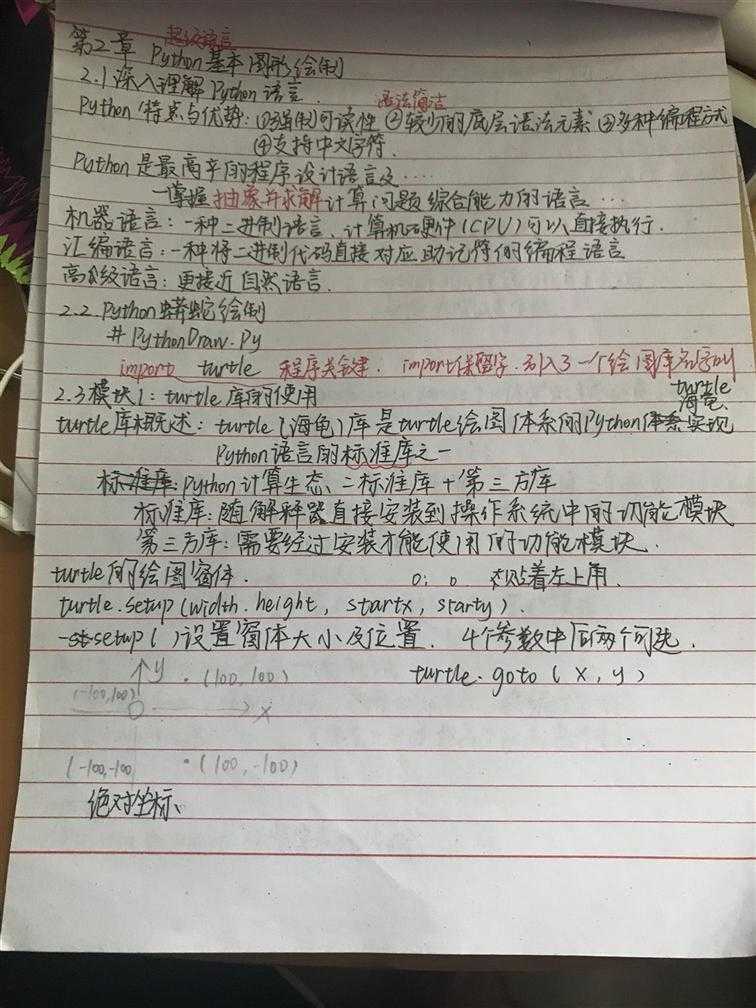 超级语言
第2章 Python基本图形绘制
2.1深入理解Python语言.
语法简洁
Python特点与优势:①强制可读性 ②较少的底层语法元素 ③多种编程方式
④支持中文字符.
Python是最高产的程序设计语言及·····
一掌握抽象并求解计算问题综合能力的语言···
机器语言:一种二进制语言、计算机硬件(CPU)可以直接执行.
汇编语言:一种将二进制代码直接对应助记符的编程语言
高级语言:更接近自然语言.
2.2.Python蟒蛇绘制
# PythonDraw.Py
import turtle 程序关键. import保留字.引入了一个绘图库名字叫
turtle
2.3模块1:turtle库的使用
海龟
turtle库概述:turtle(海龟)库是turtle绘图体系的Python体系实现
Python语言的标准库之一
标准库:Python计算生态、=标准库+第三方库
标准库:随解释器直接安装到操作系统中的功能模块
第三方库:需要经过安装才能使用的功能模块.
turtle的绘图窗体. 0; 0 贴着左上角.
turtle.setup(width.height, startx, starty).
-setup( )设置窗体大小及位置. 4个参数中后两个可选.
y ·(100,100) turtle.goto(x,y)
(-100,100)
O x
(-100,-100 ·(100,-100)
绝对坐标、